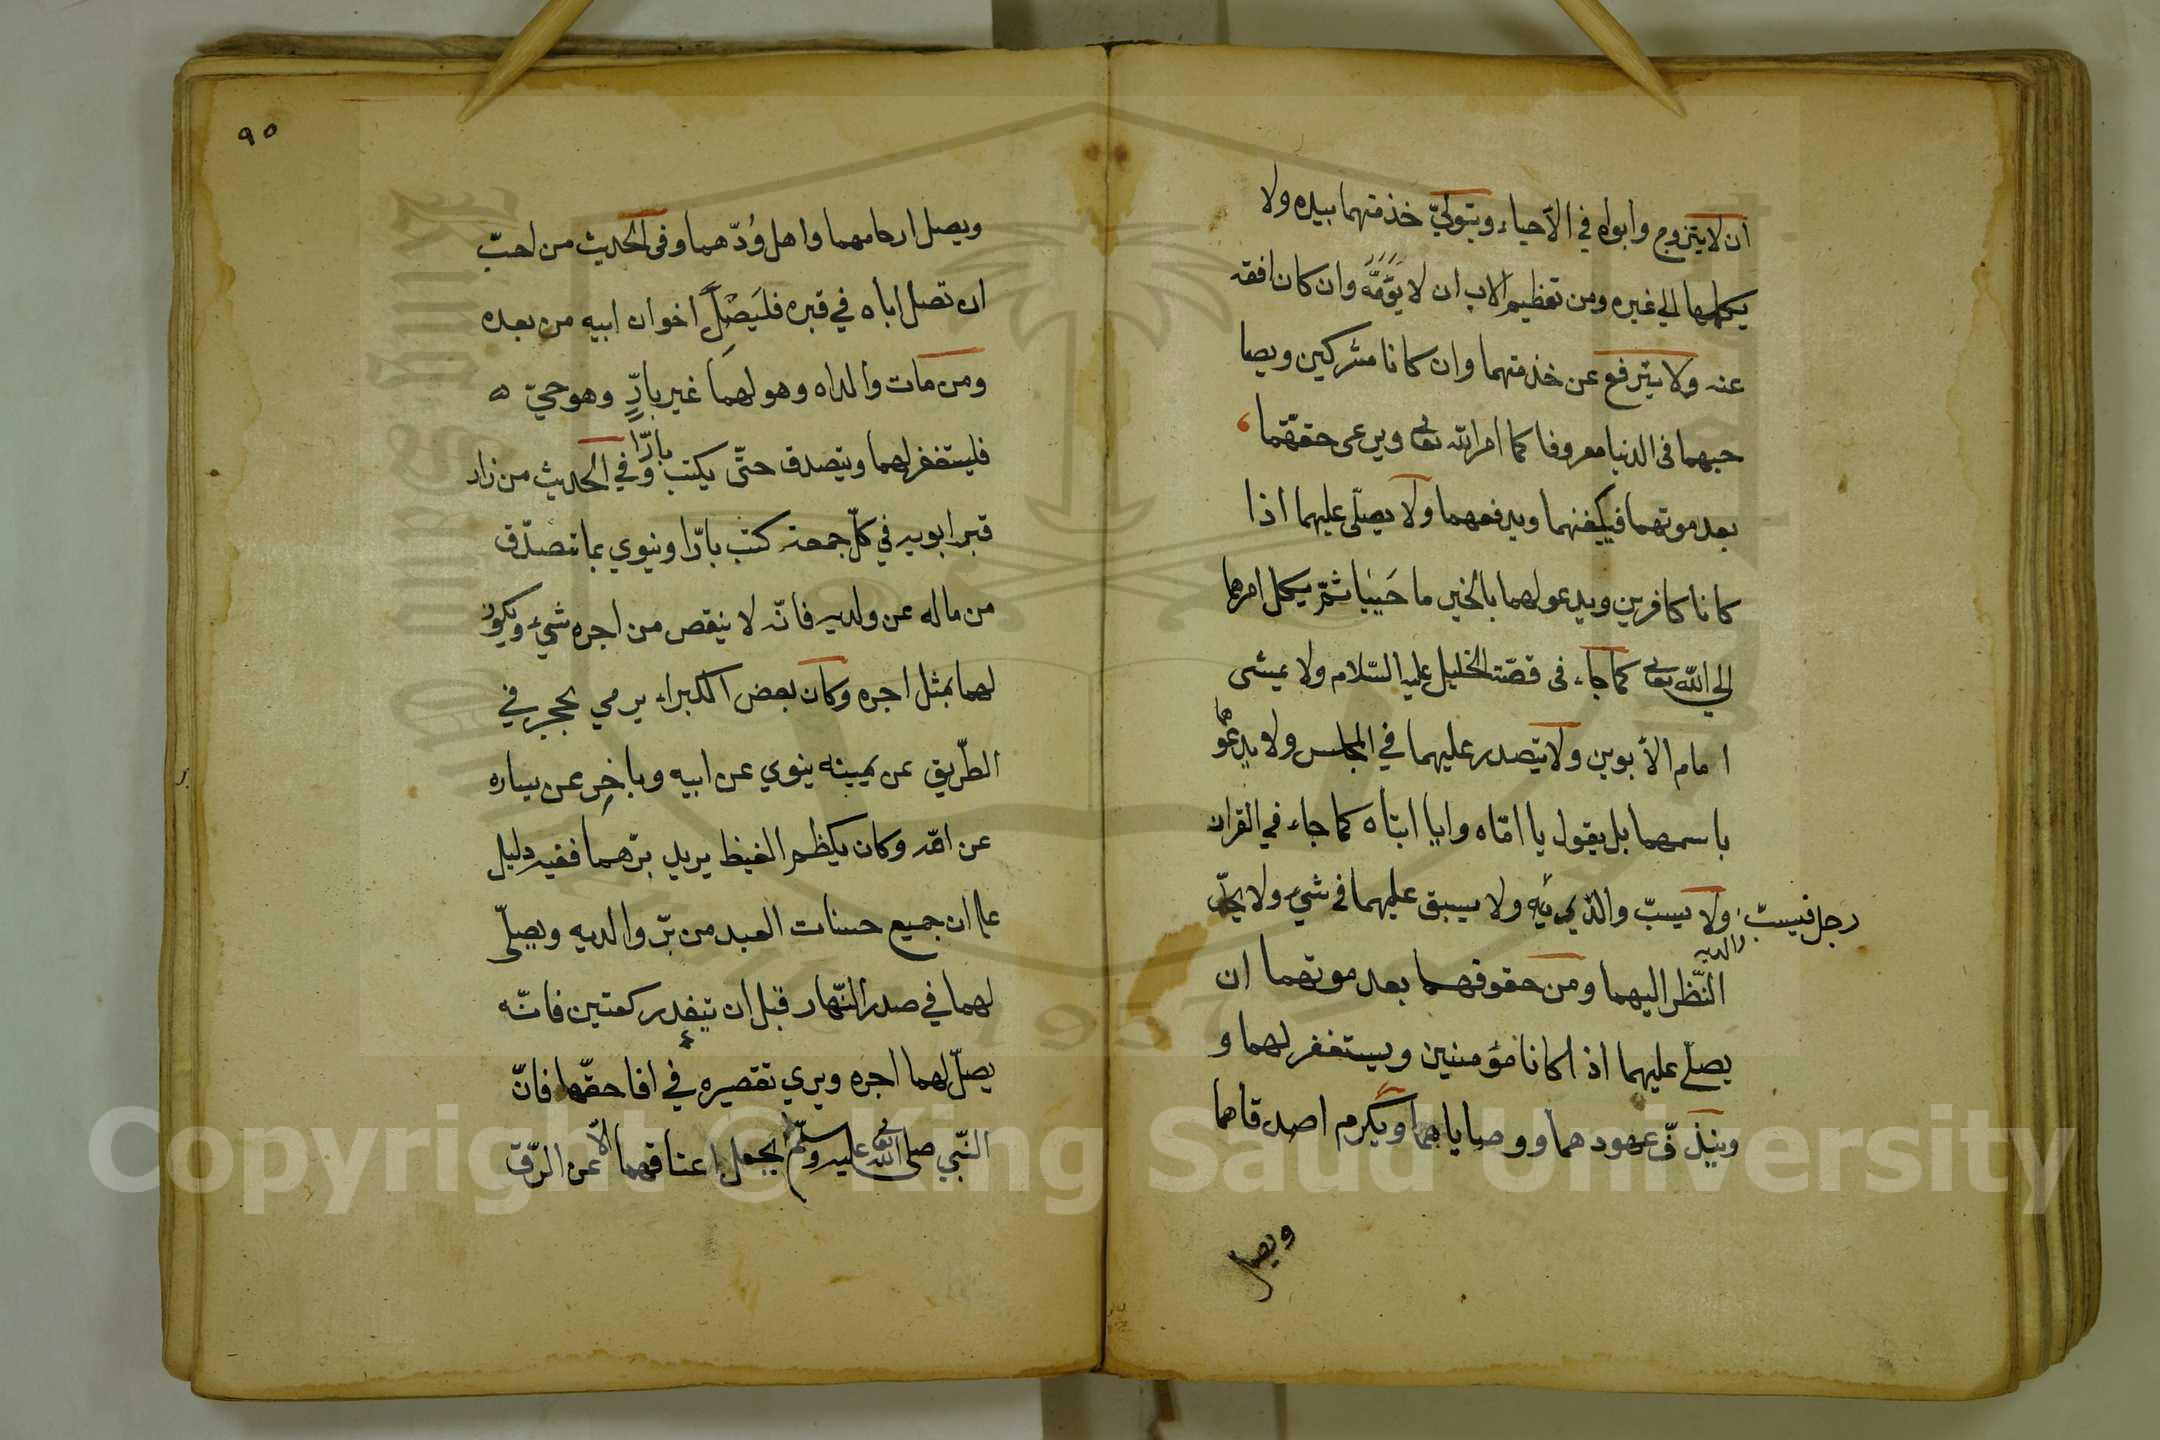 ان لا يتزوج وابواه في الاحياء ويتولّي خذمتهما بيده ولا
يكلهما الي غيره ومن تعظيم الاب ان لا يؤمّه وان كان افقه
عنه ولا يترفع عن خذمتهما وان كانا مشركين ويصا
حبهما فى الدنيا معروفا كما امر الله تعالى ويرعى حققهما
بعد موتهما فيكفنهما ويدفعهما ولا يصلّى عليهما اذا
كانا كافرين ويدعو لهما بالخير ما حَيِيَا ثمّ يكل امرهما
الي الله تعالى كما جاء فى قصّة الخليل عليه السّلام ولا يمشى
امام الأبوين ولا يتصدر عليهما في المجلس ولا يدعوهما
باسمهما بل يقول يا امّاه وايا ابتاه كما جاء في القران
ولا يسبّ والدّي ولا يسبق عليهما فى شيء ولا يحدّ
رجل فيسبّ والديه
النّظر اليهما ومن حقوقهما بعد موتهما ان
يصلّى عليهما اذا كانا مؤمنين ويستغفر لهما و
وينفّذ عهودهما ووصاياهما ويكرم اصدقاهما
ويصل
٩٥
ويصل ارحامهما واهل وُدّهما وفى الحديث من احبّ
ان تصل اباه في قبره فليَصْل اخوان ابيه من بعده
ومن مات والداه وهو لهما غير بارٍّ وهو حيّ ه
فليستغفر لهما ويتصدق حتّى يكتب بارّا وفي الحديث من زار
قبر ابويه في كلّ جمعة كتب بارّا وينوي بما تتصدّق
من ماله عن ولديه فانّه لا ينقص من اجره شيء ويكون
لهما بمثل اجره وكان بعض الكبراء يرمي بحجر في
الطّريق عن يمينه ينوي عن ابيه وباخرِ عن يساره
عن امّه وكان يكظم الغيظ يريد برّهما ففيه دليل
علي ان جميع حسنات العبد من برّ والديه ويصلّى
لهما في صدر النّهار قبل ان ركعتين فانّه
يصلّ لهما اجره ويري تقصيره في افا حقّهما فانّ
النّبي صلى الله تعالى عليه وسلّم لم يجعل اعناقهما الّا عن الرّق